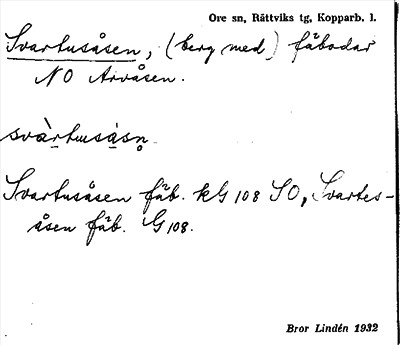 Ore sn, Rättviks tg, Kopparb. l.
Svartusåsen, (berg med) fäbodar
NO Arvåsen.
svàrtusåsn
Svartusåsen fäb. kG 108 SO, Svartes-
åsen fäb. G 108.
Bror Lindén 1932